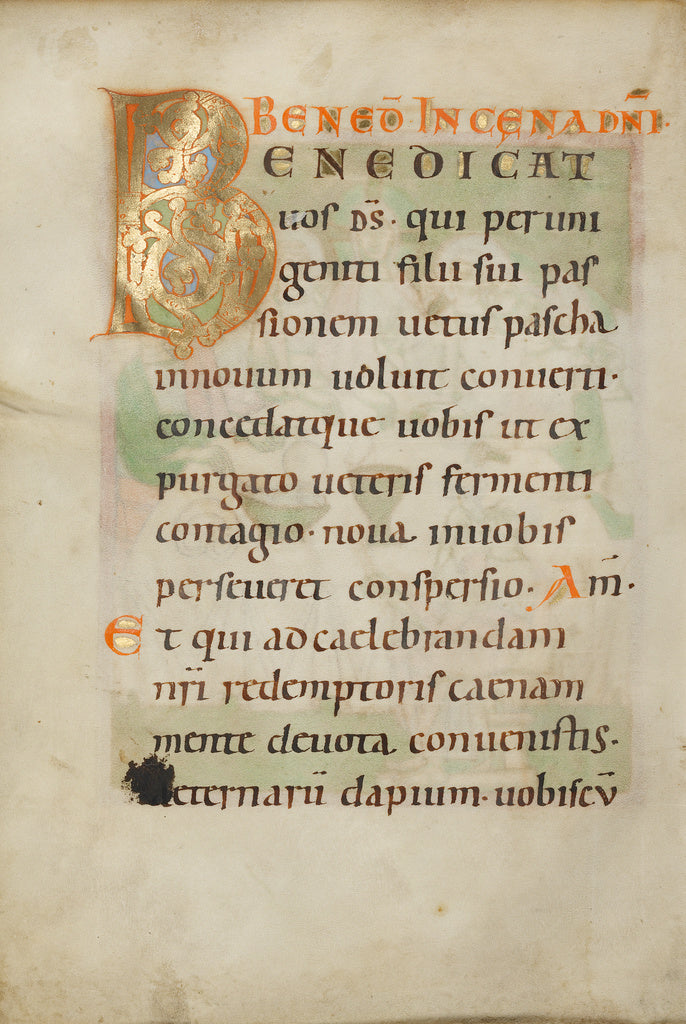 BENED̄ IN CENA DN̄I·
BENEDICAT
uos DS̄· qui per uni
geniti filii sui pas
sionem uetus pascha
in nouum uoluit conuerti·
concedatque uobis ut ex
purgato ueteris fermenti
contagio· noua in uobis
perseueret conspersio· Am̄·
Et qui ad caelebrandam
nr̄i redemptoris caenam
mente deuota conuenistis·
aeternarū dapium· uobiscū